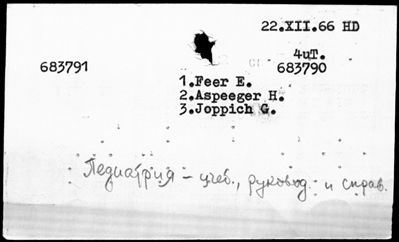 22.XII.66 HD
4uT.
683791 683790
1.Feer E.
2.Aspeeger H.
3.Joppich G.
Педиатрия - учеб., руковод. и справ.